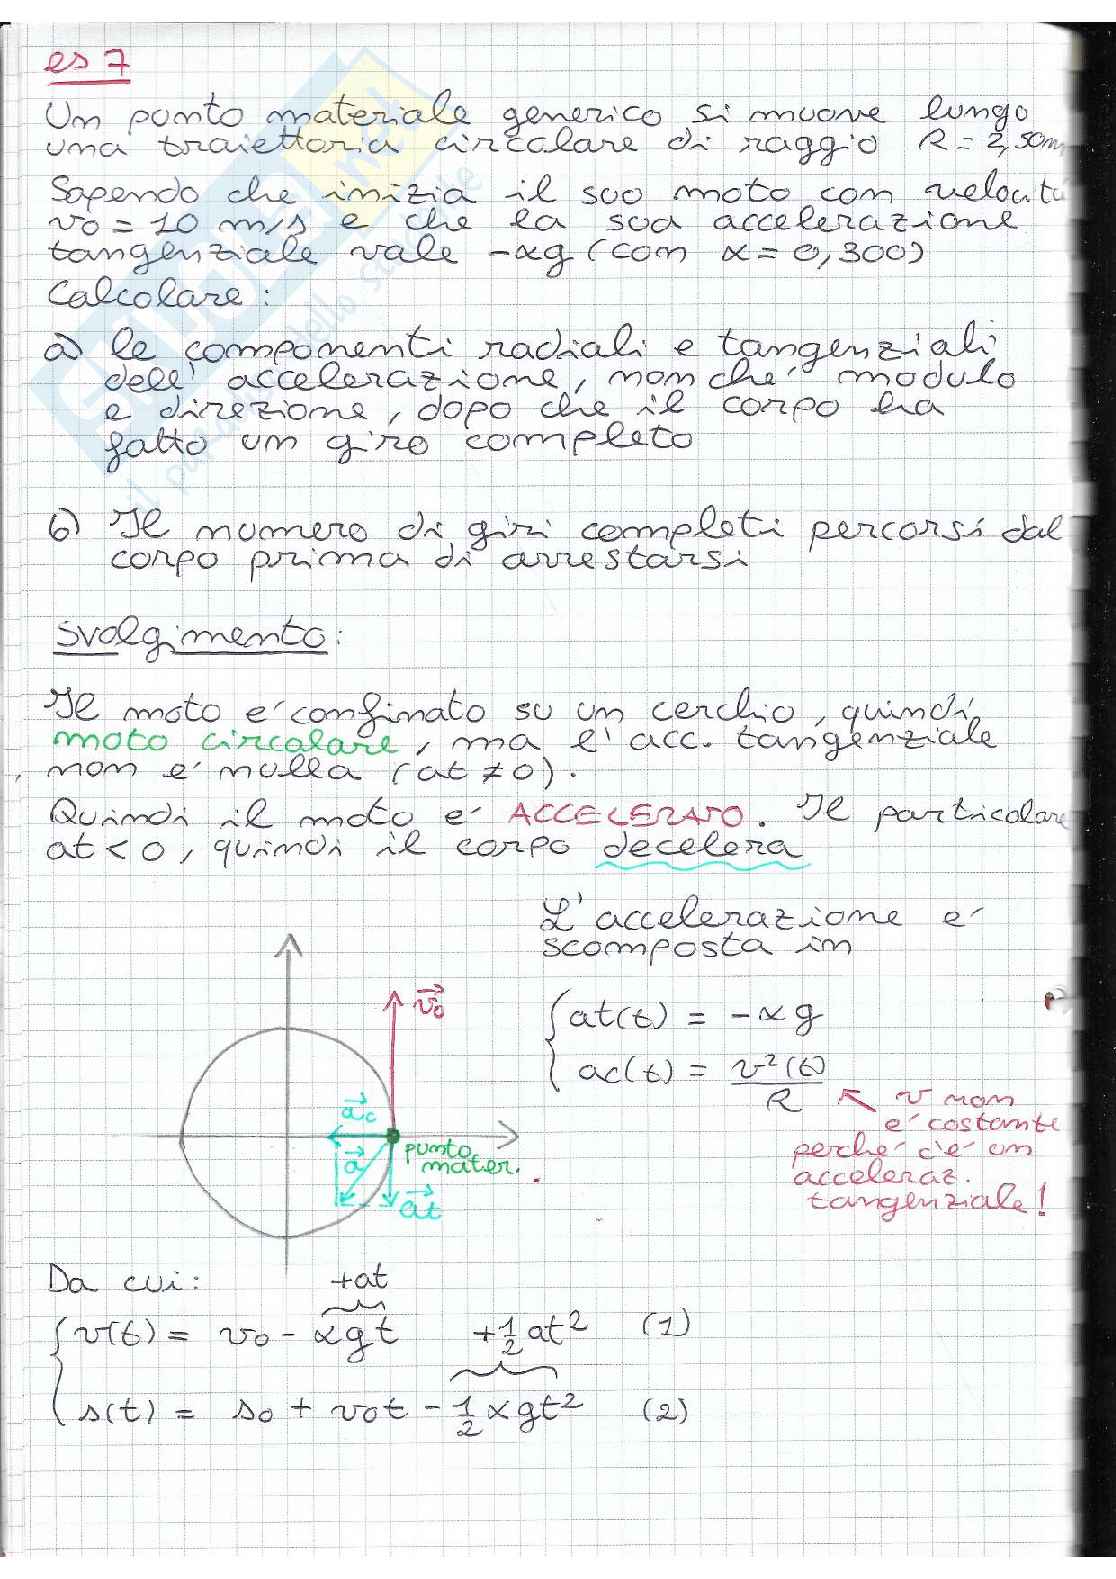 es 7
Un punto materiale generico si muove lungo
una traiettoria circolare di raggio R = 2,50m,
Sapendo che inizia il suo moto con velocità
v0 = 10 m/s e che la sua accelerazione
tangenziale vale -αg (con α = 0,300)
Calcolare:
a) le componenti radiali e tangenziali
dell' accelerazione, nonché modulo
e direzione, dopo che il corpo ha
fatto un giro completo
b) Il numero di giri completi percorsi dal
corpo prima di arrestarsi
svolgimento:
Il moto è confinato su un cerchio, quindi
moto circolare, ma l'acc. tangenziale
non è nulla (at ≠ 0).
Quindi il moto è ACCELERATO. Il particolare
at < 0, quindi il corpo decelera
L'accelerazione è
scomposta in
v⃗0
at(t) = -αg
ac(t) = v²(t)/R
v non
è costante
perché c'è un
acceleraz.
tangenziale!
a⃗c
a⃗
punto
mater.
a⃗t
Da cui:
+at
v(t) = v0 - αgt (1)
+½at²
s(t) = s0 + v0t - ½αgt² (2)